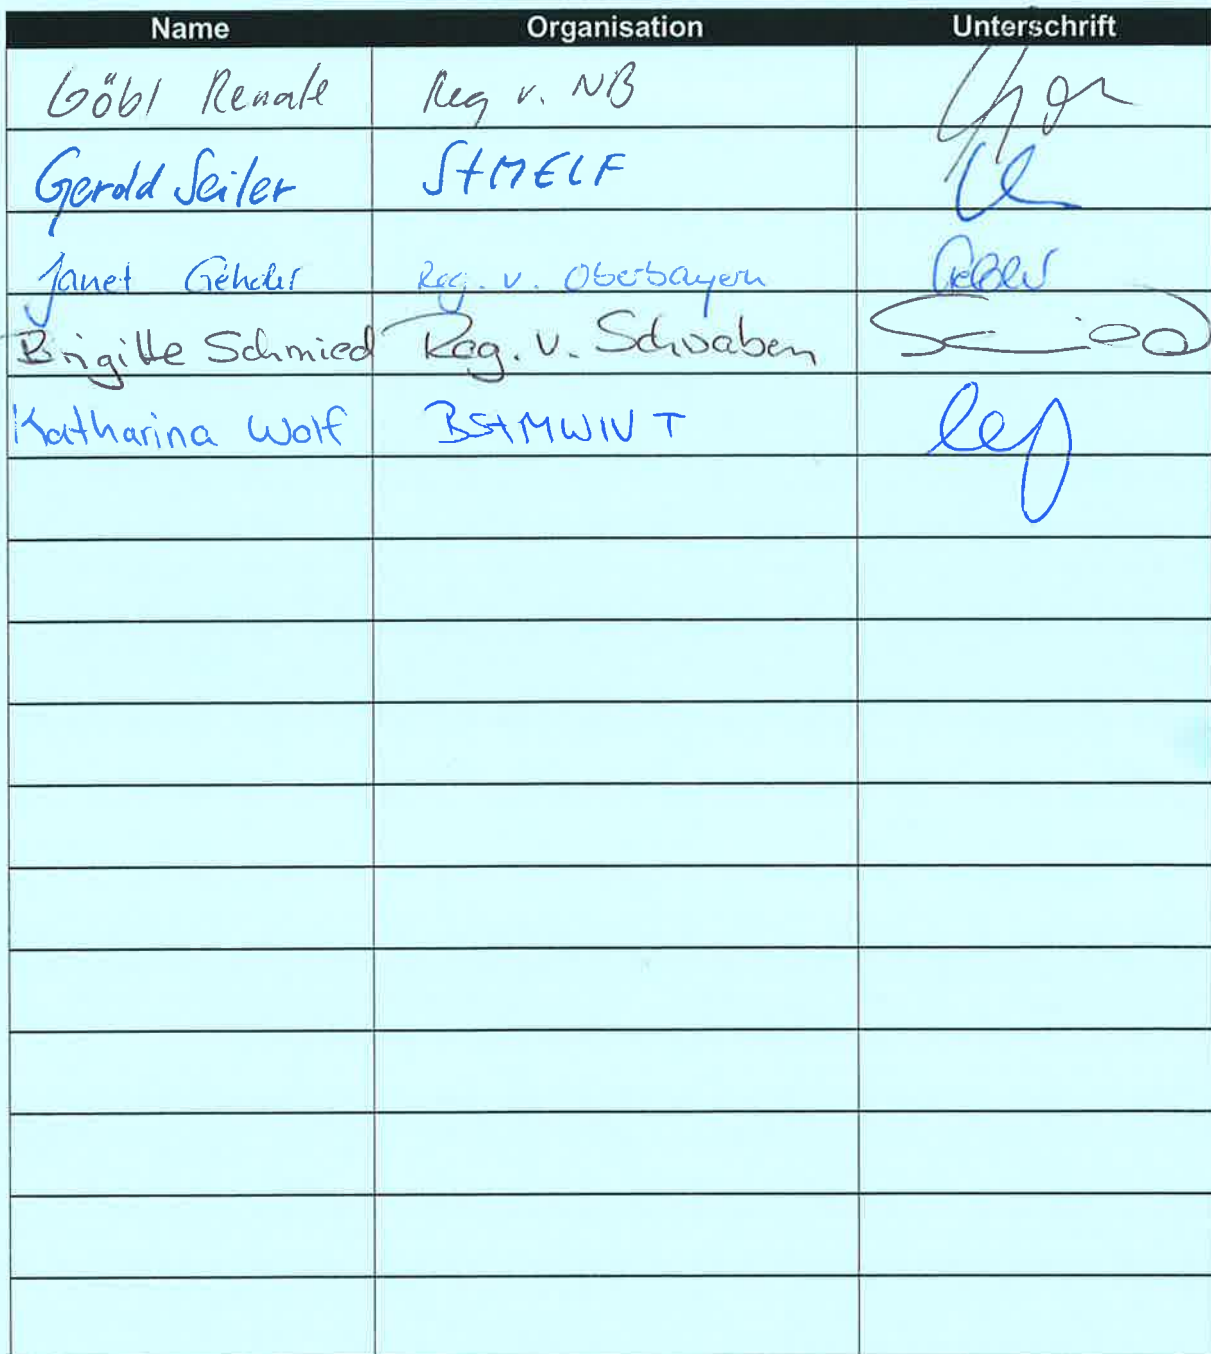 Name Organisation Unterschrift
Göbl Renate Reg v. NB
Gerold Seiler StMELF
Janet Reg. v. Oberbayern
Brigitte Schmied Reg. v. Schwaben
Katharina Wolf BStMWIVT